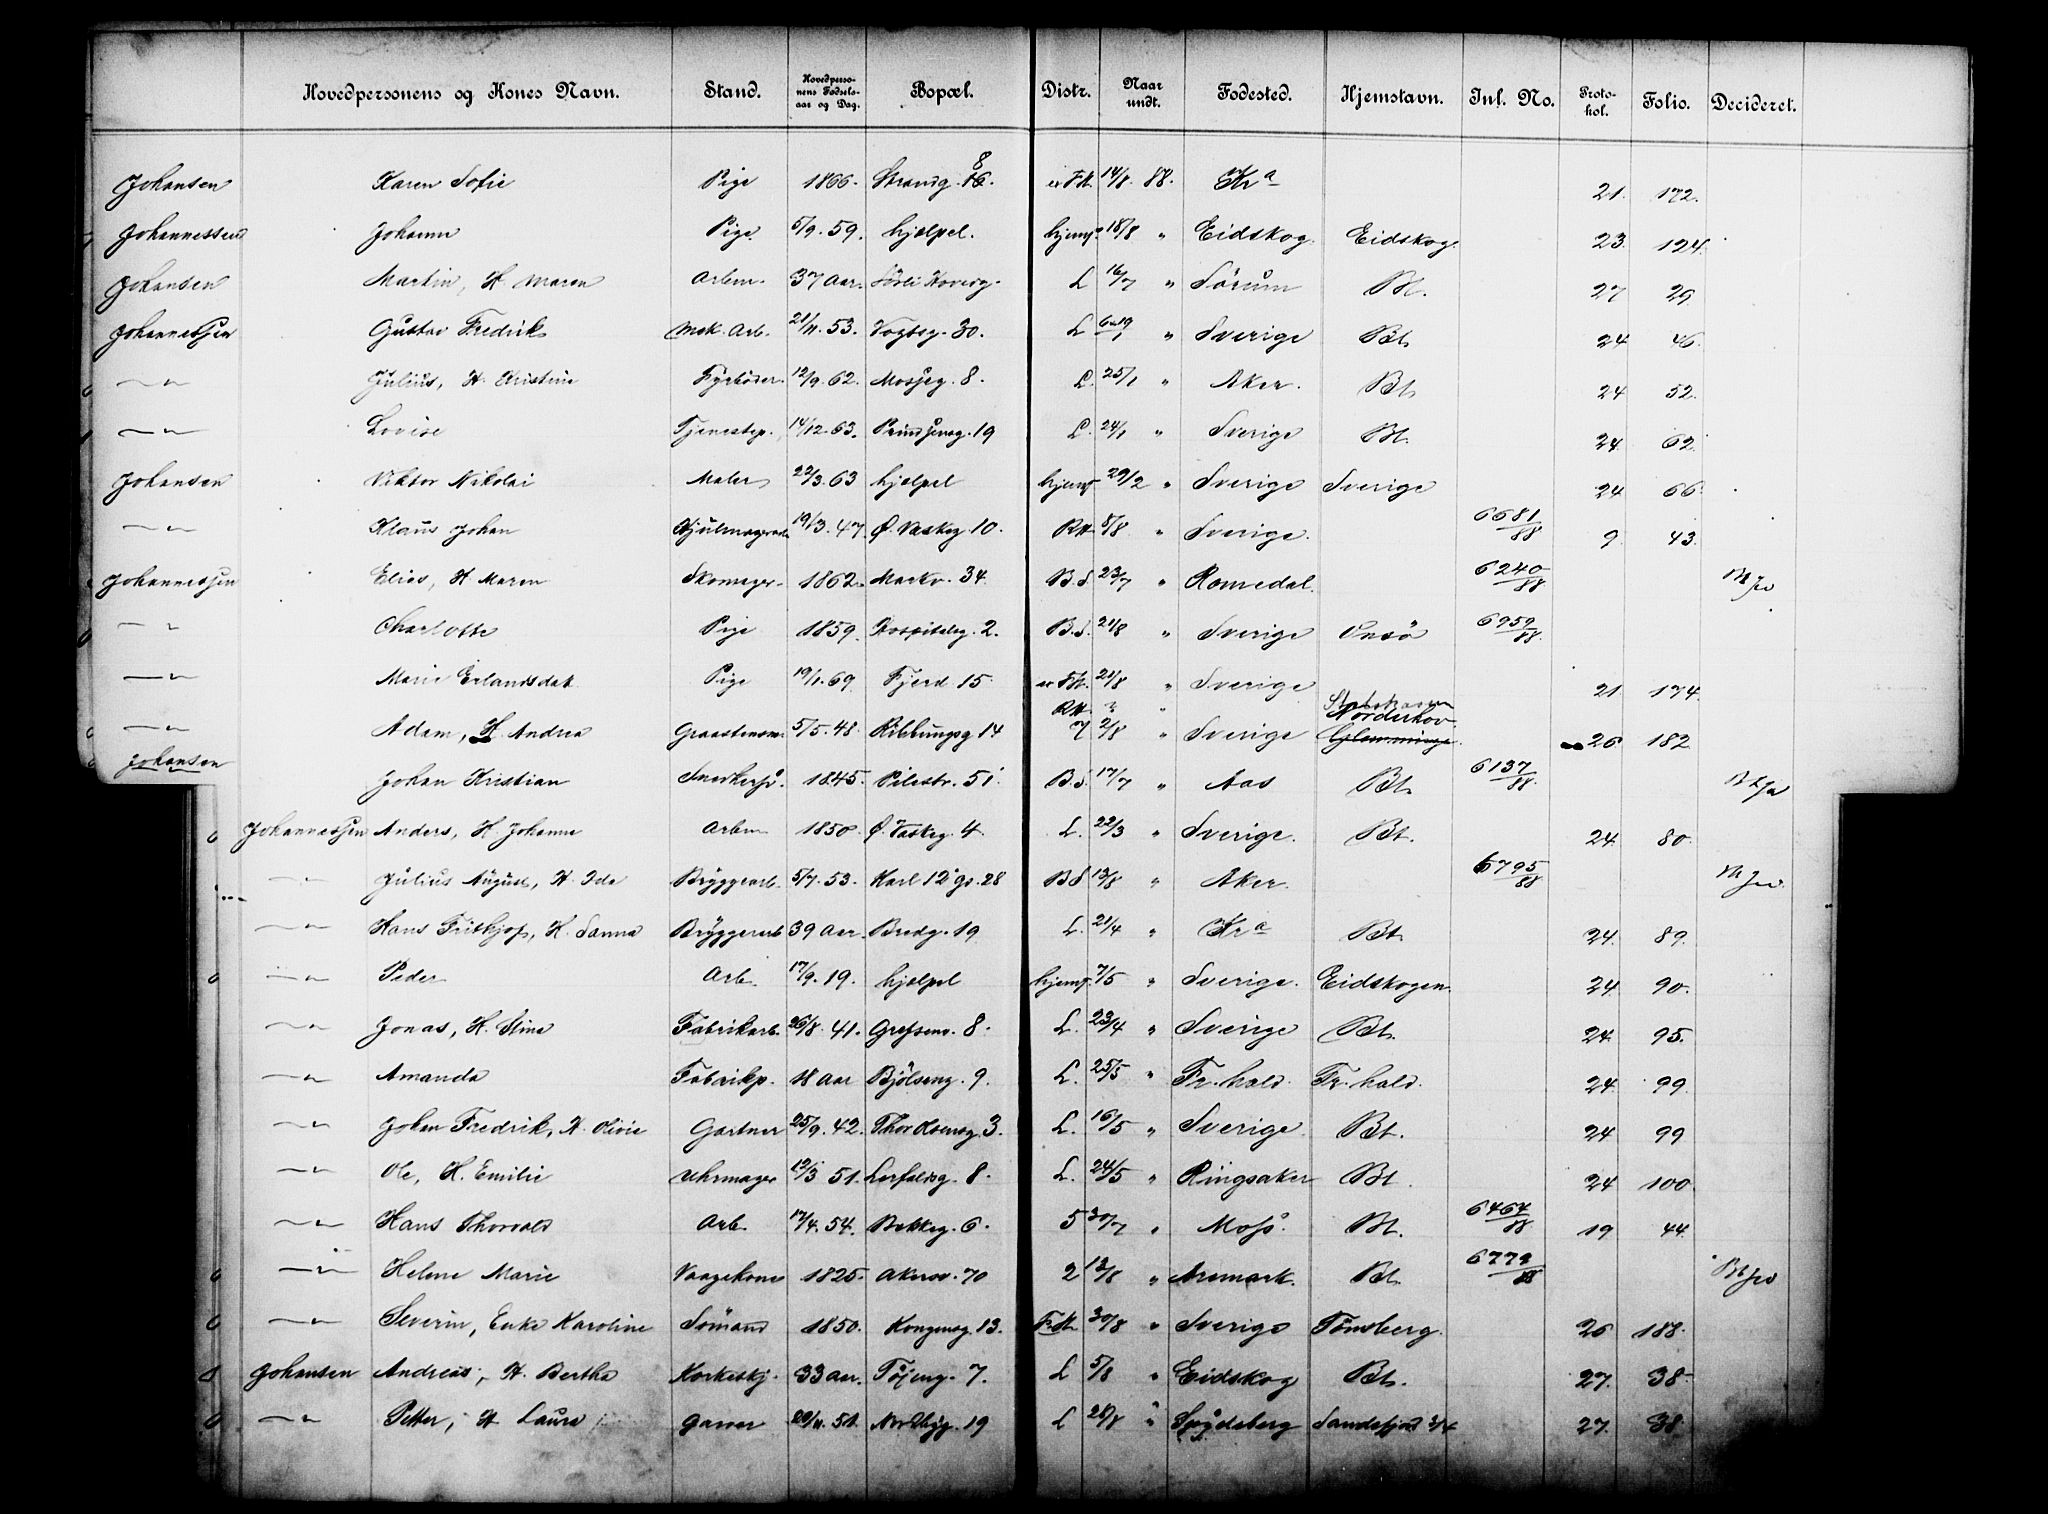 Hovedpersonens og Kones Navn. Stand. Hovedpersonens Fødselsaar og Dag. Bopæl. Distr. Naar undt. Fødested. Hjemstavn. Inf. No. Protokol. Folio. Decideret.
Johansen Karen Sofie Pige 1866. Strandg. 8 Ftk. 14/8 88. Kra 21. 172.
Johannessen Johanne Pige. 5/9. 59. hjælpel. hjemf. 18/8 " Eidskog. Eidskog. 23. 124.
Johansen Martin, H. Maren Arbm. 37 Aar. L 16/7 " Sørum Bt. 27 29
Johannessen Gustav Fredrik Mek. Arb. 21/11. 53. Vogtsg. 30. L " Sverige Bt. 24 46.
—"— Julius, H. Kristine Fyrbøder. 12/9. 62. Mosseg. 8. L. 25/1 " Aker. Bt. 24 52.
—"— Lovise Tjenestep. 14/12. 63. Prindsensg. 19 L. 24/1 " Sverige Bt. 24. 62.
Johansen Viktor Nikolai Maler 22/3. 63 hjælpel hjemf. 29/2 " Sverige Sverige 24. 66.
—"— Klaus Johan Hjulmagersv. 19/3. 47. Ø. Vaskeg. 10. Rtk. 8/8 " Sverige. 6681/88 9. 43.
Johannessen Elias, H. Maren Skomager. 1862. Markv. 34. B.S. 23/7 " Romedal. 6240/88
—"— Charlotte Pige 1859. Hospitalsg. 2. B.S. 21/8 " Sverige Onsø 6959/88.
—"— Marie Erlandsdat. Pige 19/1. 69. Fjerd 15. Ftk. 21/8 " Sverige 21. 174.
—"— Adam, H. Andrea Graastensm. 5/5. 48. Ribbungsg 14 Rtk. 7 2/8 " Sverige Statskassen Norderhov. Glemminge. 26. 182.
Johansen Johan Kristian Snedkersv. 1845. Pilestr. 51. B.S. 17/7 " Aas Bt. 6137/88.
Johannessen Anders, H. Johanne Arbm 1850. Ø. Vaskeg. 4. L. 22/3 " Sverige. Bt. 24. 80.
—"— Julius August, H. Ida Bryggearb. 5/7. 53. Karl 12's g. 28 BS 13/8 " Aker. 6795/88
—"— Hans Fritkjof, H. Sanna Bryggerarb. 39 Aar. Bredg. 19 L. 21/4 " Kra Bt. 24. 89.
—"— Peder Arb. 17/9. 19. hjælpel hjemf. 7/5 " Sverige. Eidskogen. 24. 90.
—"— Jonas, H. Stina Fabrikarb. 26/8. 41. Grefsenv. 8. L. 23/4 " Sverige Bt. 24. 95.
—"— Amanda Fabrikp. 18 Aar Bjølseng. 9. L. 25/5 " Fr. hald. Fr. hald. 24. 99.
—"— Johan Fredrik, H. Olivie Gartner 25/9. 42. Thor Olsensg. 3. L. 16/5 " Sverige. Bt. 24 99
—"— Ole, H. Emilie Uhrmager 12/3 51. Lerfaldsg. 8. L. 24/5 " Ringsaker Bt. 24 100.
—"— Hans Thorvald Arb. 17/4. 54. Bakkeg. 6. 5 30/7 " Moss. Bt. 6464/88 19 44.
—"— Helene Marie Vaagekone 1825. Akersv. 70 2 13/8 " Aremark. Bt. 6779/88
—"— Severin, Enke Karoline Sømand 1850. Kongensg. 13. Ftk. 30/8 " Sverige Tønsberg. 26 188.
Johansen Andreas, H. Bertha Korkeskj. 33 Aar. Tøjeng. 7. L 5/8 " Eidskog Bt. 27. 38.
—"— Petter, H. Laura Garver 51. Nordbyg. 19 L 28/8 " Spydeberg Sandefjord 27. 38.